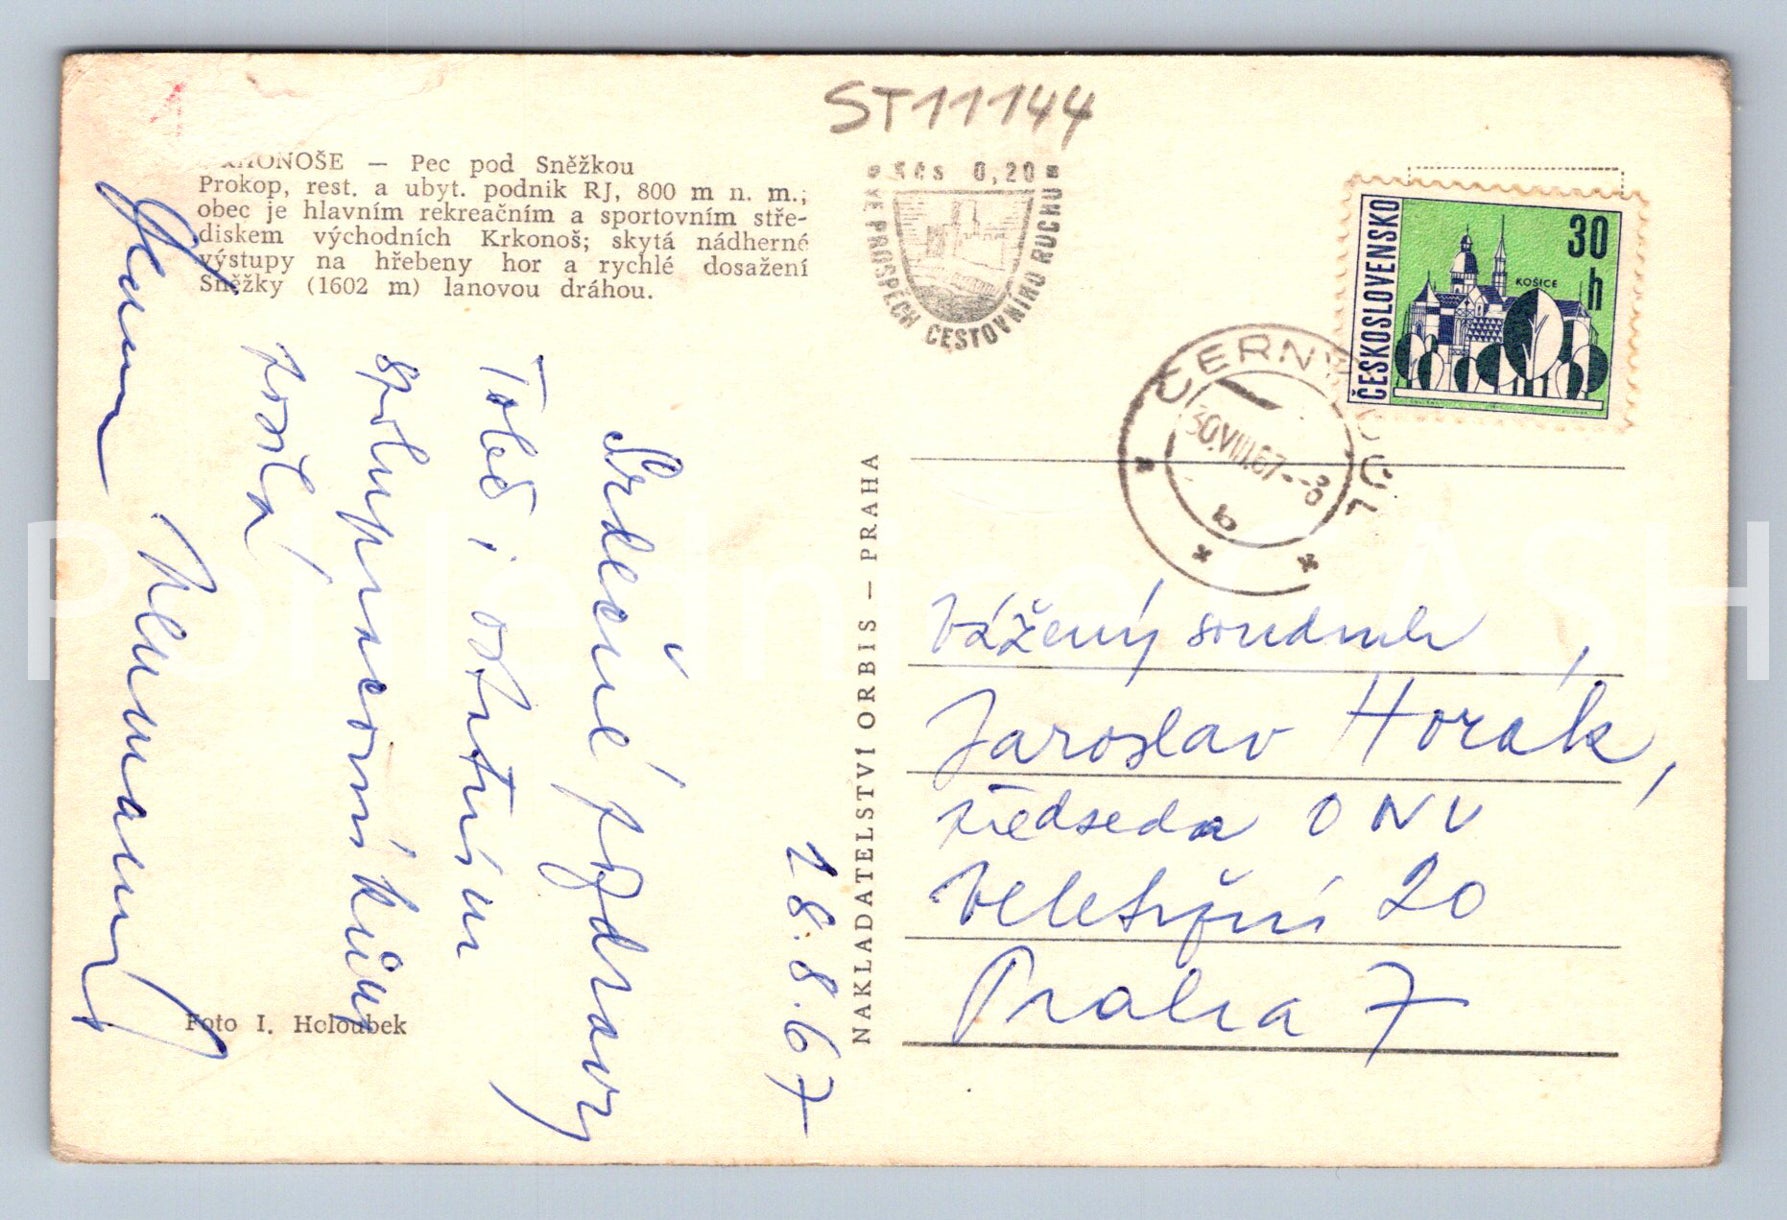 ST11144
KRKONOŠE — Pec pod Sněžkou
Prokop, rest. a ubyt. podnik RJ, 800 m n. m.;
obec je hlavním rekreačním a sportovním stře-
diskem východních Krkonoš; skytá nádherné
výstupy na hřebeny hor a rychlé dosažení
Sněžky (1602 m) lanovou dráhou.
Kčs 0,20
VE PROSPĚCH CESTOVNÍHO RUCHU
ČESKOSLOVENSKO
30
h
KOŠICE
ČERNÝ DŮL
30.VIII.67--8
b
28.8.67
Srdečné pozdravy
Tobě i ostatním
spolupracovníkům
posílá
Neumannová
Vážený soudruh,
Jaroslav Horák,
předseda ONV
Veletržní 20
Praha 7
NAKLADATELSTVÍ ORBIS — PRAHA
Foto I. Holoubek
Pohlednice SASH